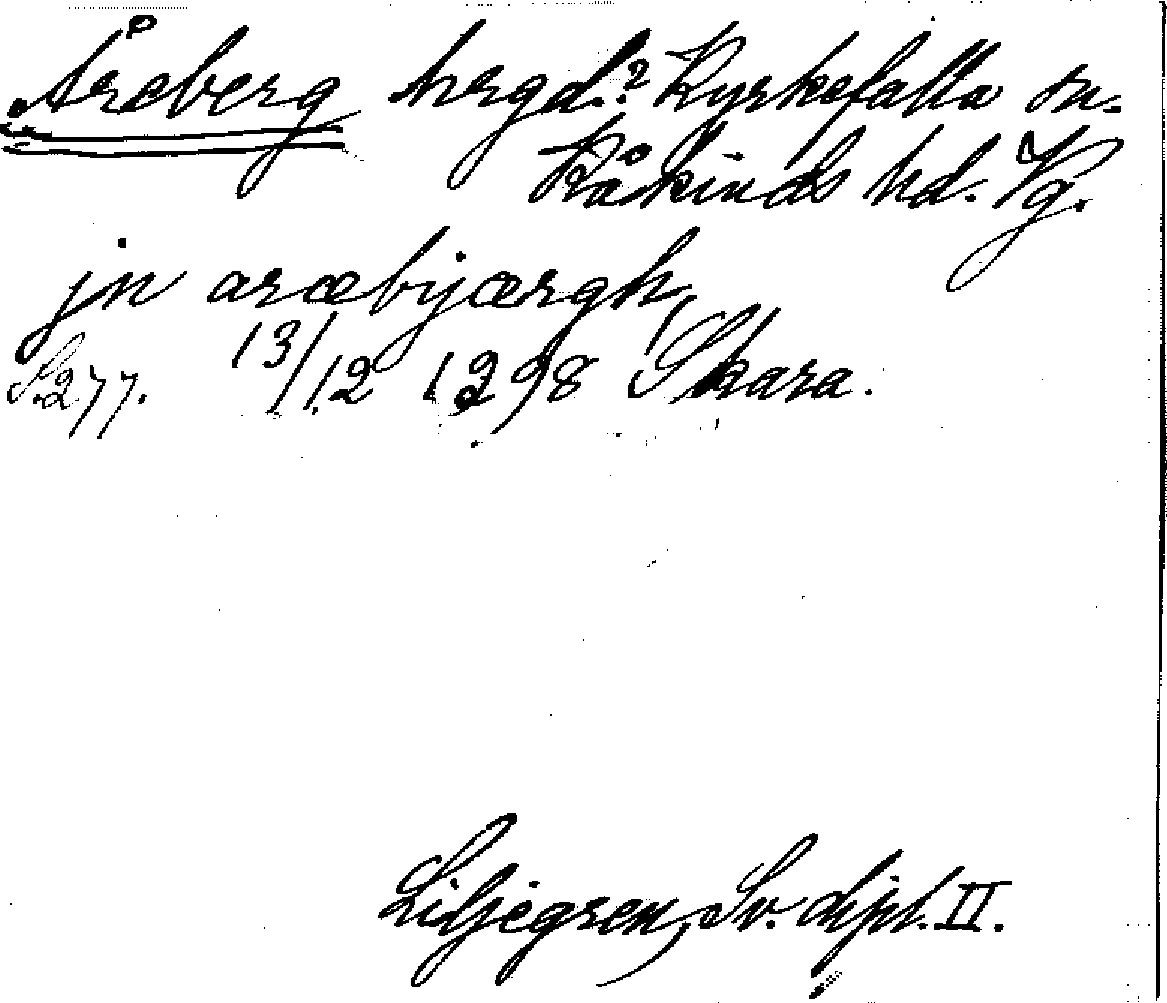 Åreberg hrgd.? Kyrkefalla sn.
Kåkinds hd. Vg.
jn aræbyærgh
S. 277. 13/12 1298 Skara.
Liljegren, Sv. dipl. II.